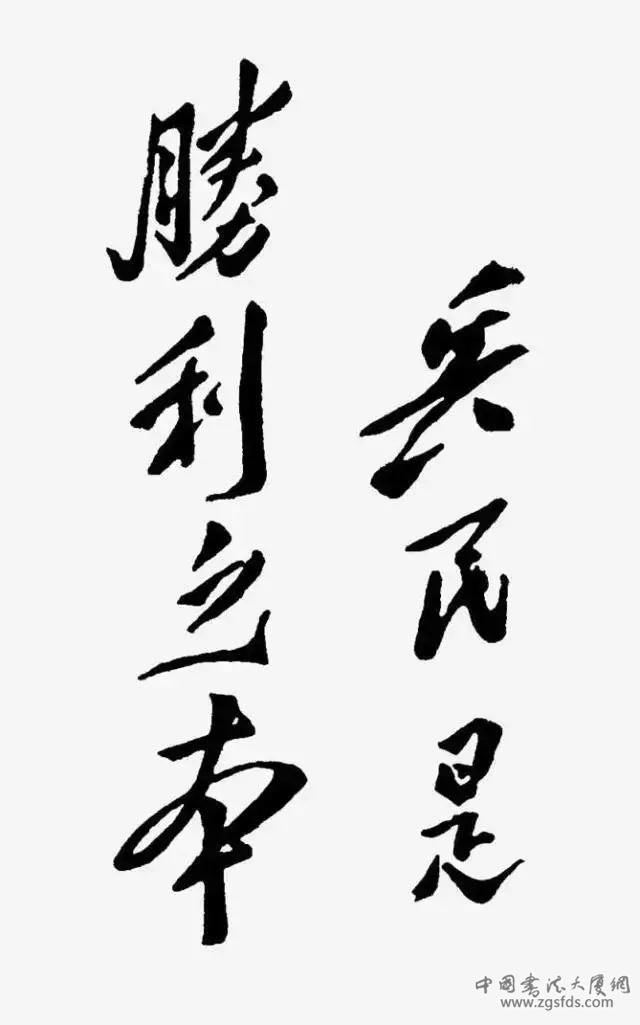 兵民是
勝利之本
中国書法大厦網
www.zgsfds.com